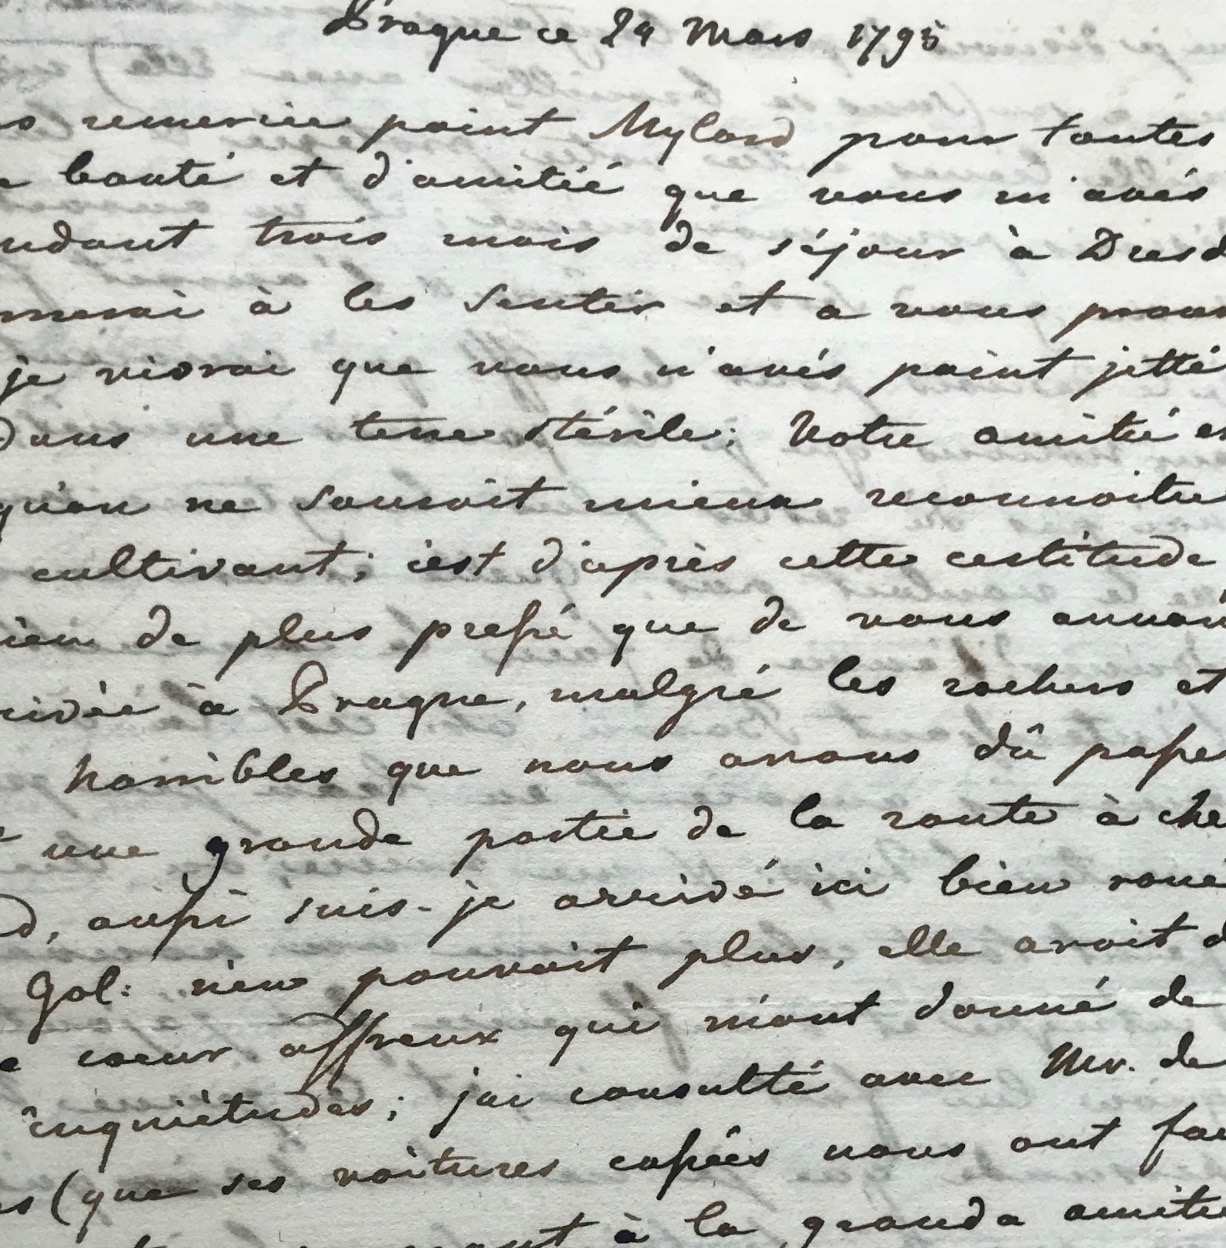 Prague ce 24 Mars 1795
remercie point Mylord pour toutes
bonté et d'amitié que vous m'avés
ndant trois mois de séjour à Dresd
merai à les sentir et a vous prouv
je vivrai que vous n'avés point jetté
dans une terre stérile; Votre amitié es
qu'on ne sauroit mieux reconnoitre
cultivant; c'est d'après cette certitude
ien de plus pressé que de vous annon
rivée à Prague, malgré les rochers et
horribles que nous avons dû passer
une grande partie de la route à che
d, aussi suis-je arrivé ici bien roué
Gol: n'en pouvoit plus, elle avoit d
e coeur affreux qui m'ont donné de
inquiètudes; j'ai consulté avec Mr. de
es (que ses voitures cassées nous ont fai
à la grande amitié